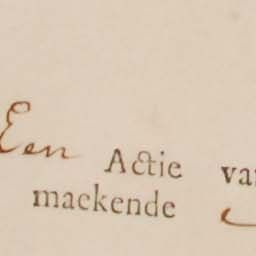 Een Actie
mackende